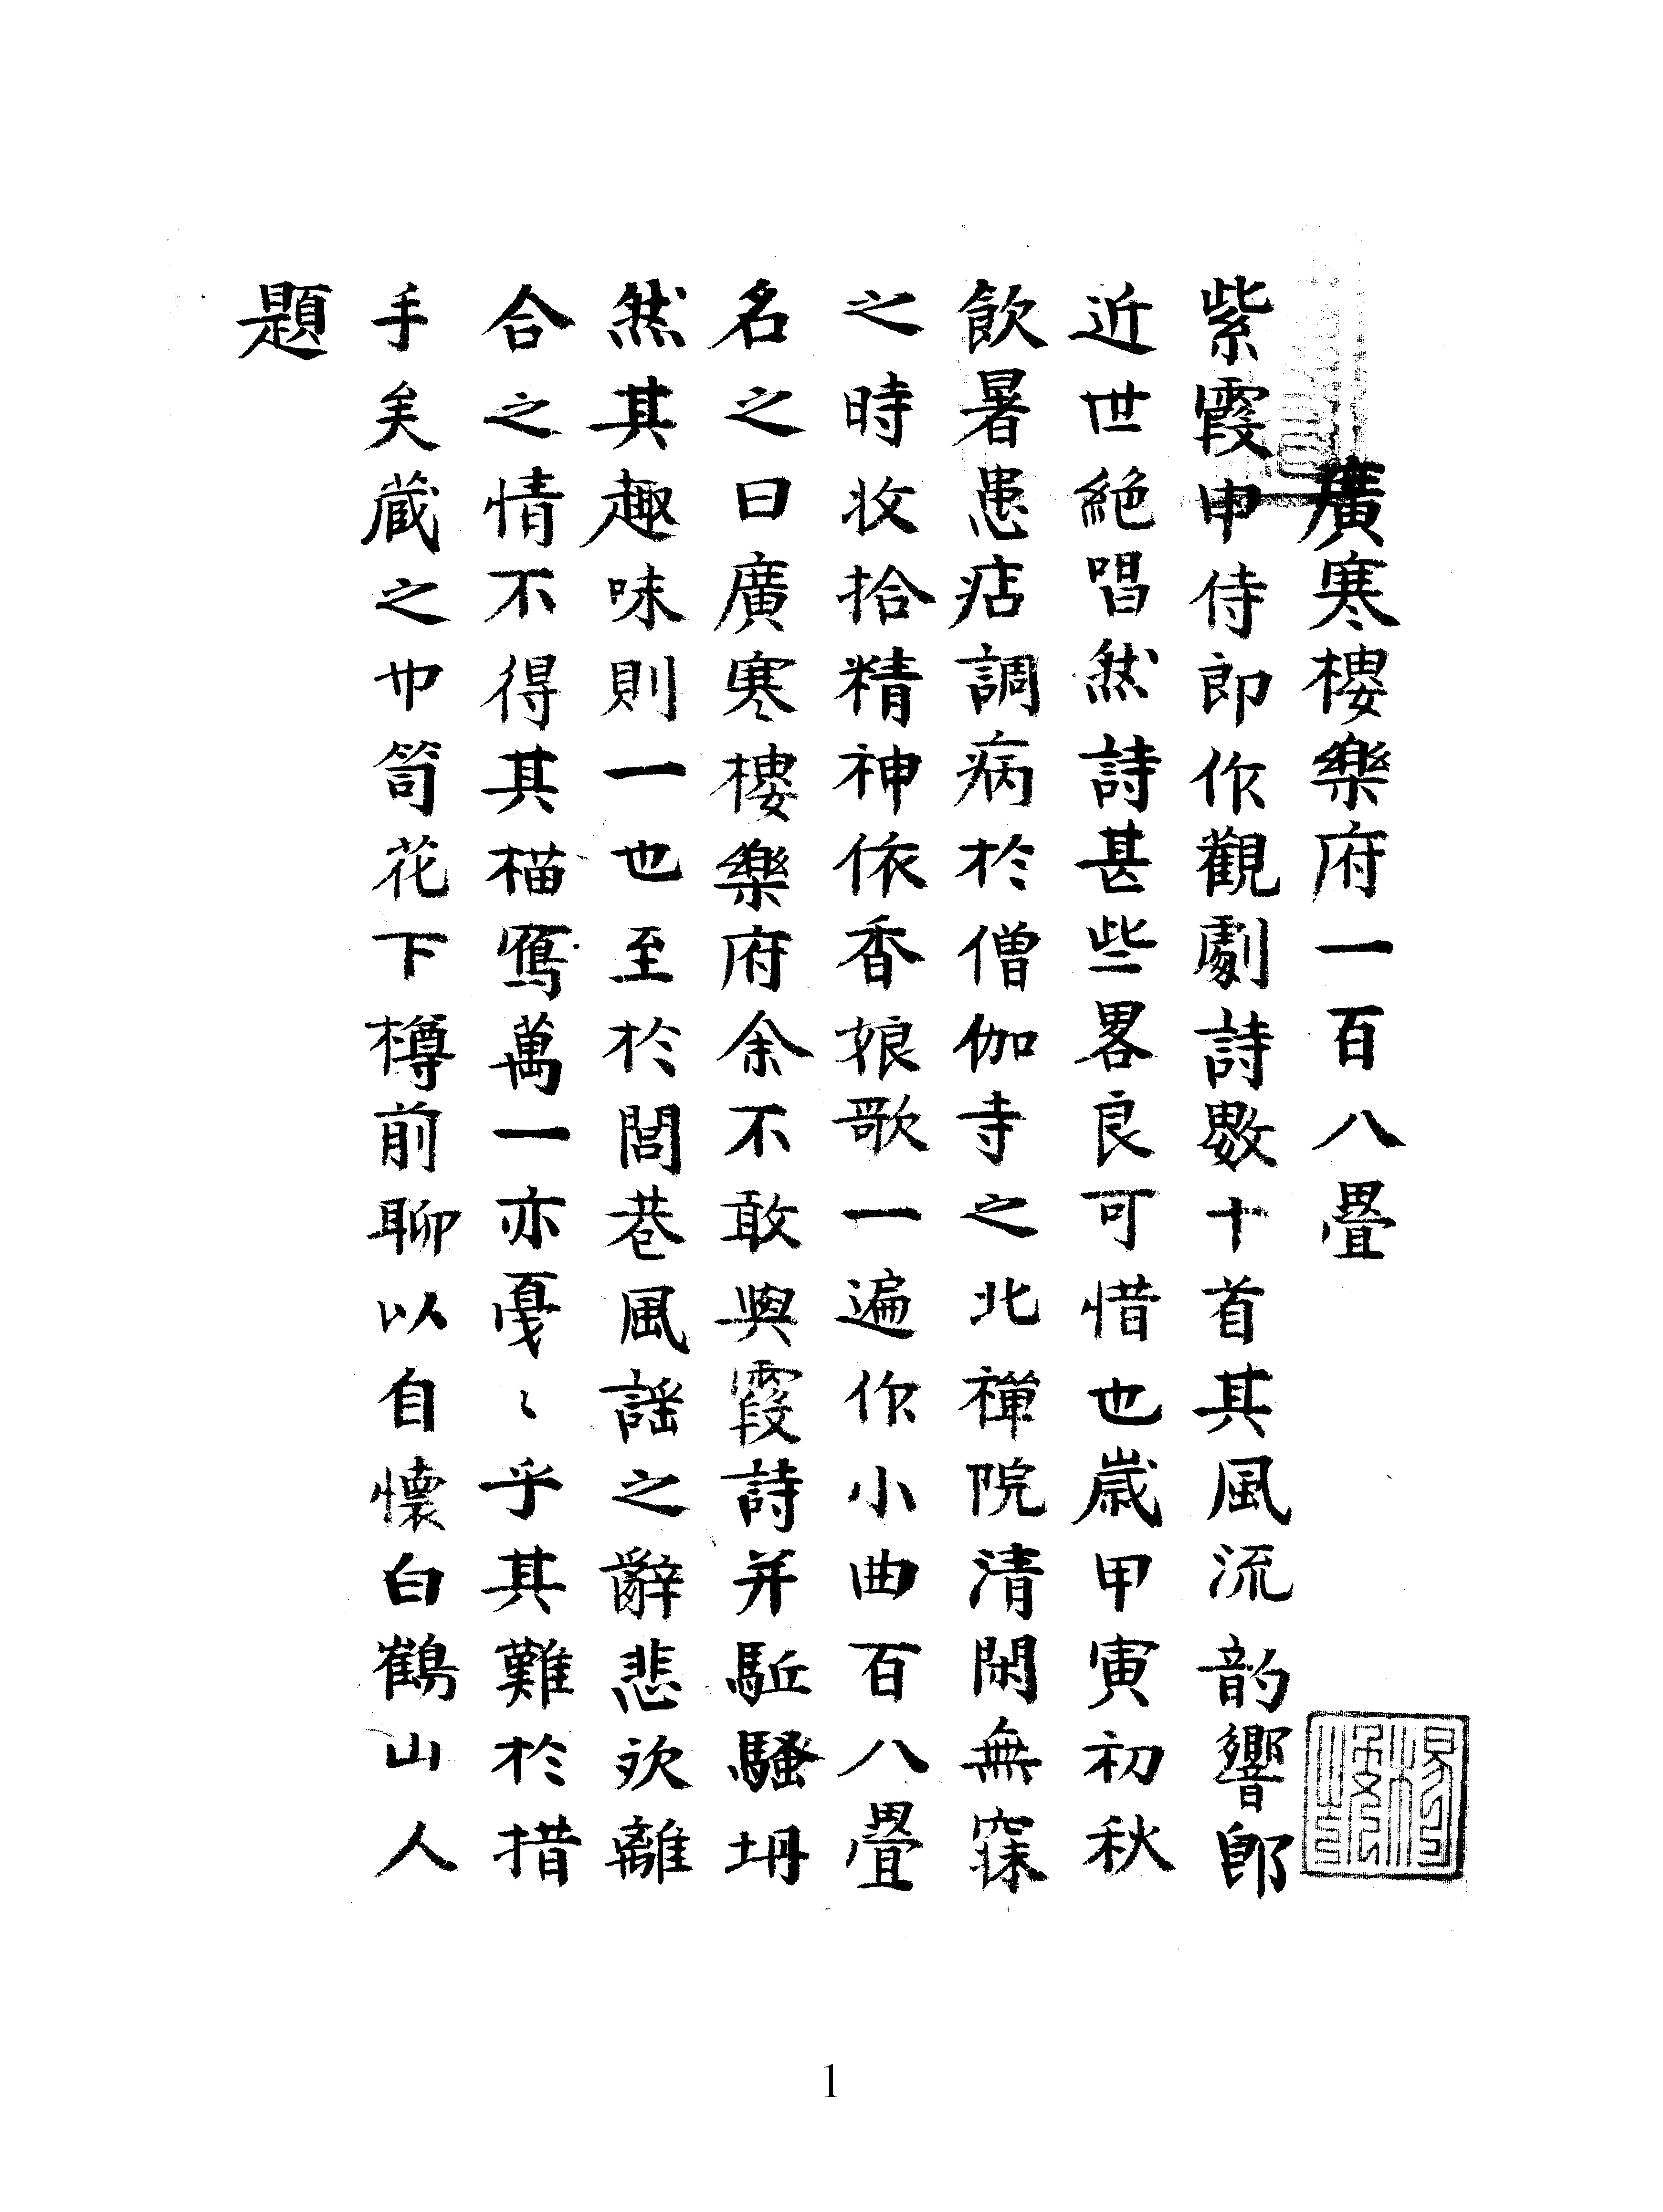 廣寒樓樂府一百八疊
紫霞申侍郎作觀劇詩數十首其風流韵響郎
近世絕唱然詩甚些畧良可惜也歲甲寅初秋
飮暑患痁調病於僧伽寺之北禪院清閑無寐
之時收拾精神依香娘歌一遍作小曲百八疊
名之曰廣寒樓樂府余不敢與霞詩并駈騷坍
然其趣味則一也至於閭巷風謡之辭悲欢離
合之情不得其描寫萬一亦戞〻乎其難於措
手矣蔵之巾笥花下樽前聊以自懷白鶴山人
題
1